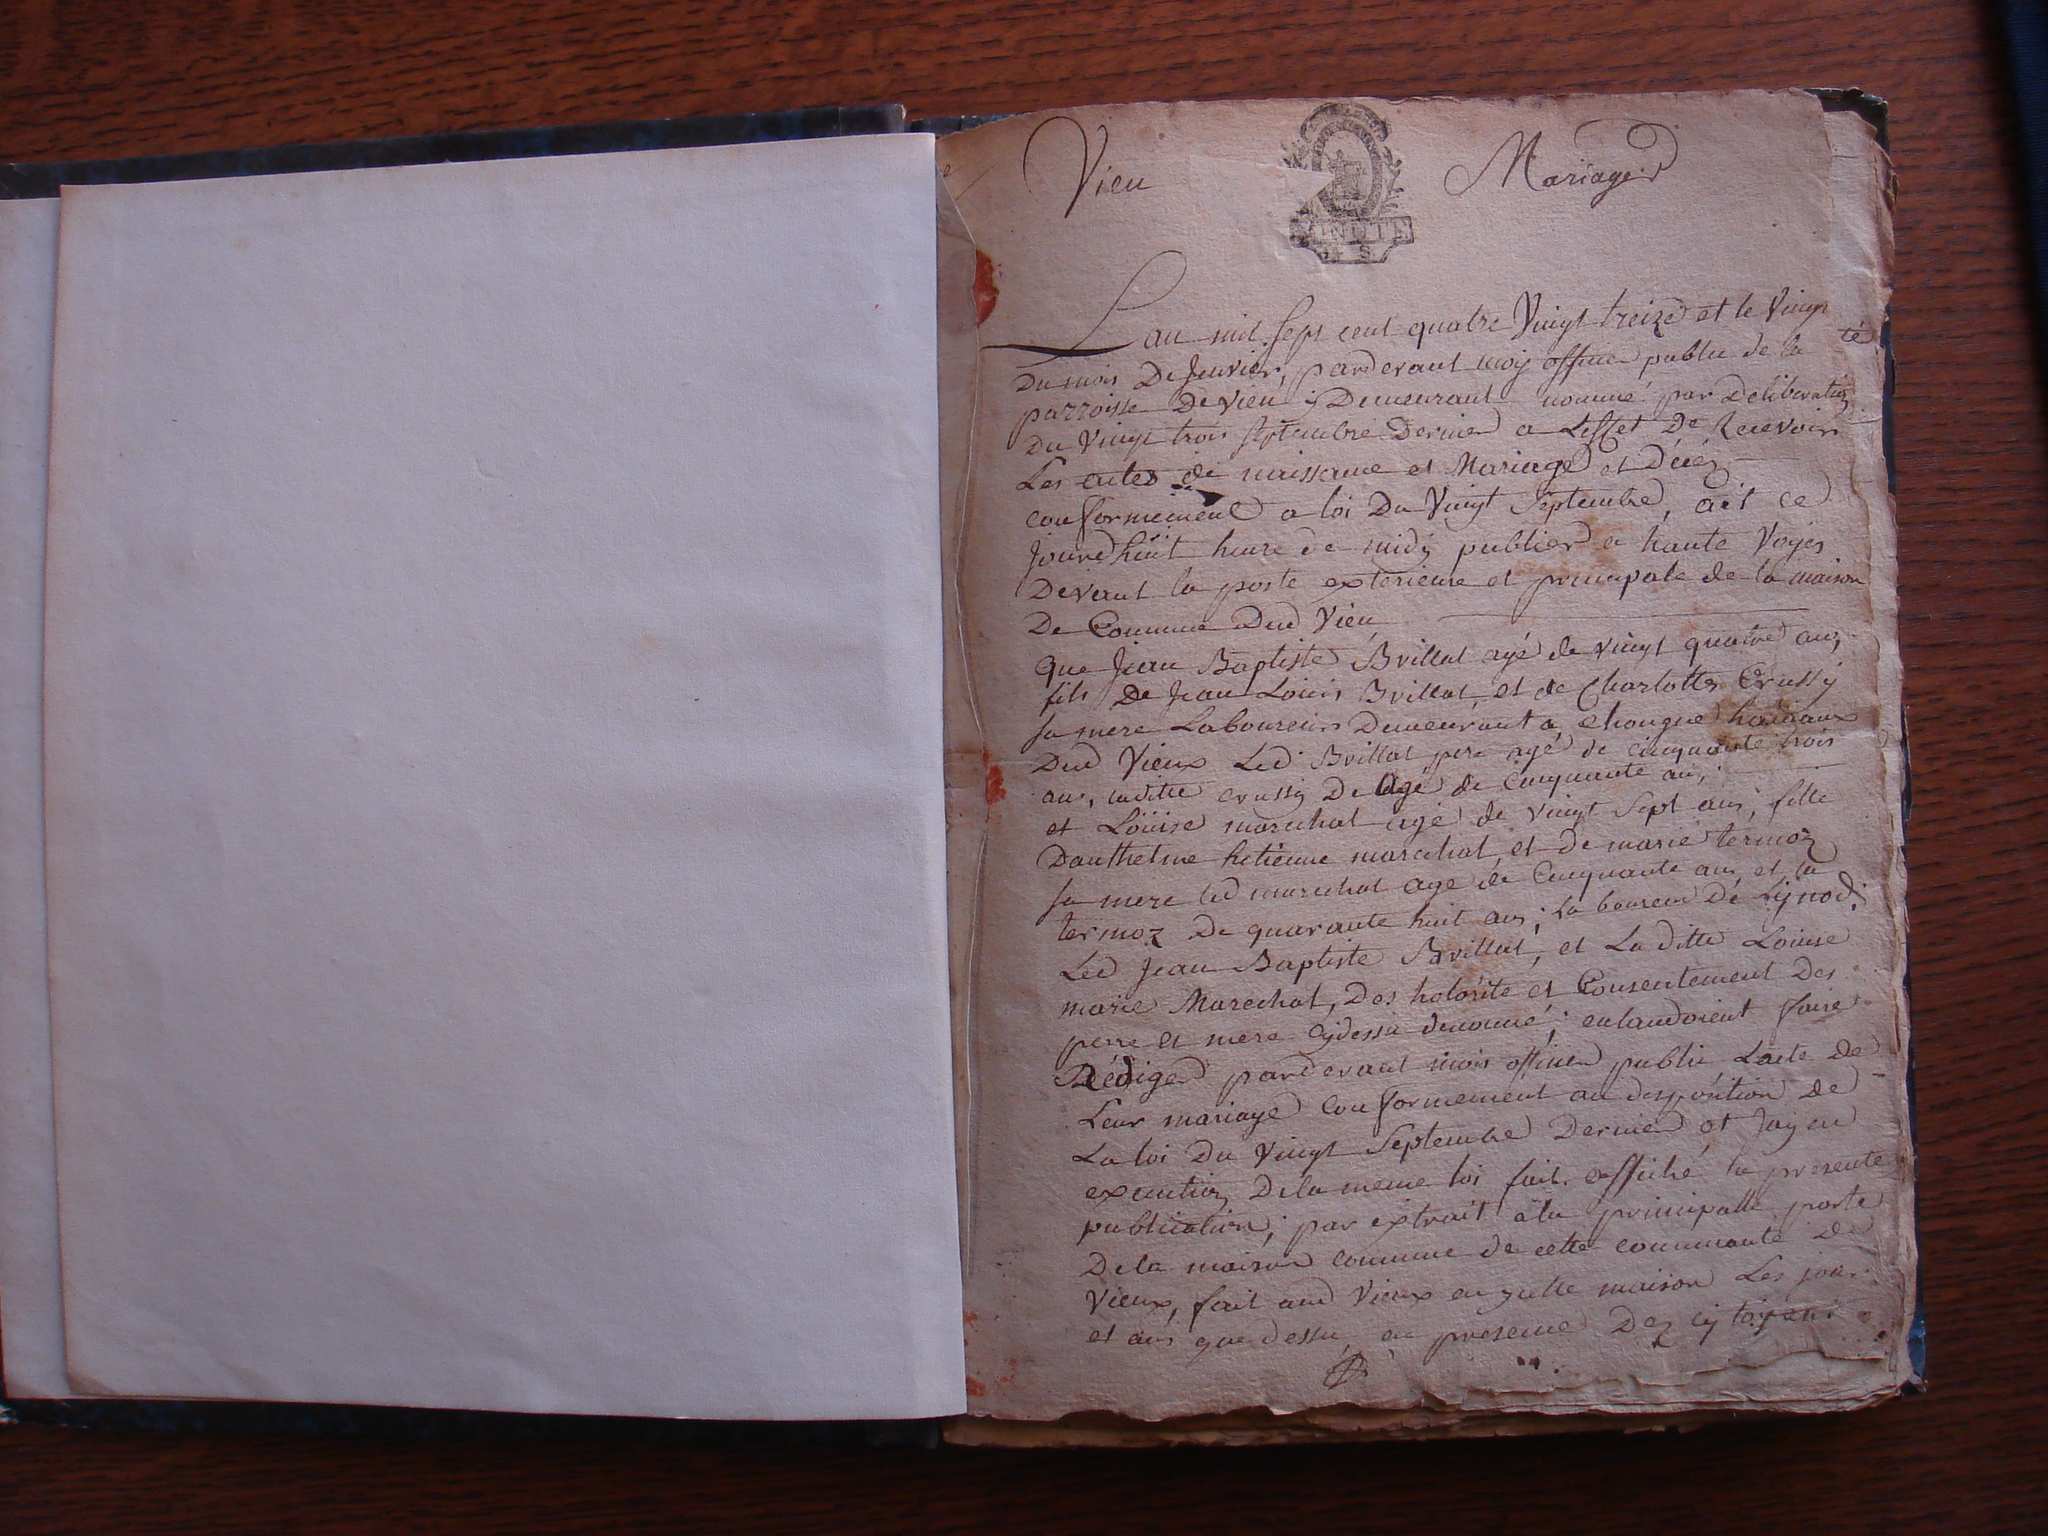 Vieu Mariage
MINUTE
S
Lan mil sept cent quatre Vingt treize et le Vingt
Du mois De Jenvier, pardevant moy officier public de la
parroisse De Vieu y Demeurant nommé par Deliberation
Du Vingt trois septembre Dernier a Leffet De Recevoir
Les actes de naissance et Mariage et Décéz
conformement a loi Du Vingt Septembre, ait ce
Jourdhüit heure de midÿ publier a haute Voyes
Devant la porte exterieure et principale de la maison
De Commune Dud Vieu
que Jean Baptiste Brillat agé de vingt quatre ans,
fils De Jean Louis Brillat et de Charlotte Crussÿ
sa mere Laboureur Demeurant a
Dud Vieux Led Brillat pere agé de cinquante trois
ans, laditte crussÿ De agé de Cinquante ans,
et Loüise marechal agé de vingt Sept ans, fille
Danthelme hetienne marechal et de marie termoz
sa mere led marechal age de Cinquante ans et la
termoz De quarante huit ans; laboureur De Lÿnod;
Led Jean Baptiste Brillat, et La ditte Loüise
marie Marechal, Des hotorité et Consentement Des
perre et mere cydessu denommé; entandoient faire
Rédiger pardevant mois officier public Lacte de
Leur mariage conformement au desposition de
La loi Du Vingt Septembre Dernier et Jay en
execution Dela meme loi fait affiché la presente
publication; par extrait a la principalle porte
De la maison commune de cette communauté de
Vieux, fait aud Vieux en maison Les jour
et ans que dessu en presence Dez cÿtoyens